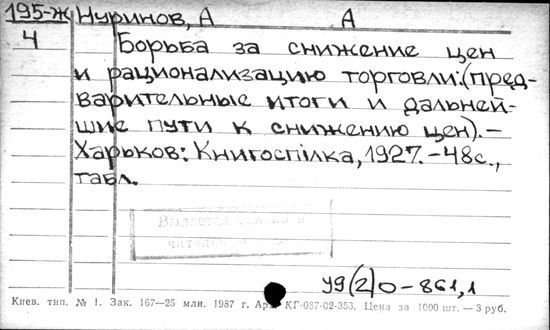 195-Ж Нуринов, А А
4 Борьба за снижение цен
и рационализацию торговли:(пред-
варительные итоги и дальней-
шие пути к снижению цен).-
Харьков: Книгоспілка, 1927.-48с.,
табл.
Выдается только в
читальный
У9(2)0-861,1
Киев. тип. № 1. Зак. 167—25 млн. 1987 г. КГ-087-02-353. Цена за 1000 шт. — 3 руб.